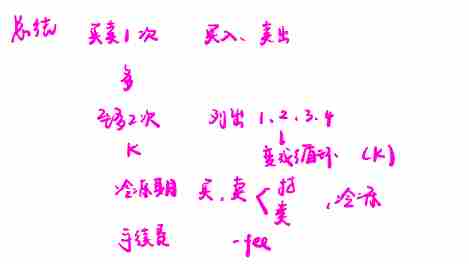 总结 买卖1次 买入、卖出
多
至多2次 列出 1、2、3、4
↓
K 变成循环 (K)
持
冷冻期 买、卖 < 、冷冻
卖
手续费 -fee